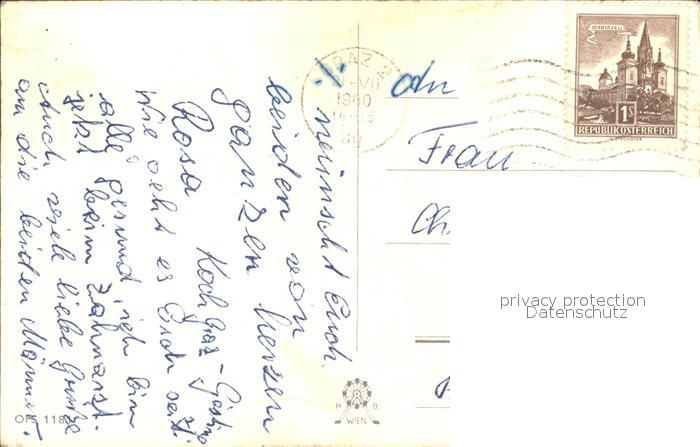 MARIAZELL
1S
REPUBLIK ÖSTERREICH
GRAZ
VII
1960
An
Frau
Ch
privacy protection
Datenschutz
Euch
beiden von
ganzen Herzen
Rosa Koch Graz-
Wie geht es Euch seit
alle gesund, ich bin
jetzt beim Zahnarzt.
Auch viele liebe Grüße
an die beiden Männer.
H B
WIEN
118